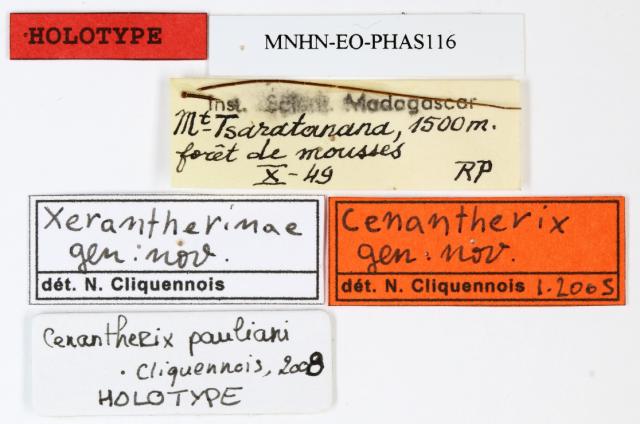 HOLOTYPE
MNHN-EO-PHAS116
Inst. Scient. Madagascar
Mt Tsaratanana, 1500m.
forêt de mousses
X-49 RP
Xerantherinae
gen. nov.
dét. N. Cliquennois
Cenantherix
gen. nov.
dét. N. Cliquennois 1.2005
Cenantherix pauliani
Cliquennois, 2008
HOLOTYPE